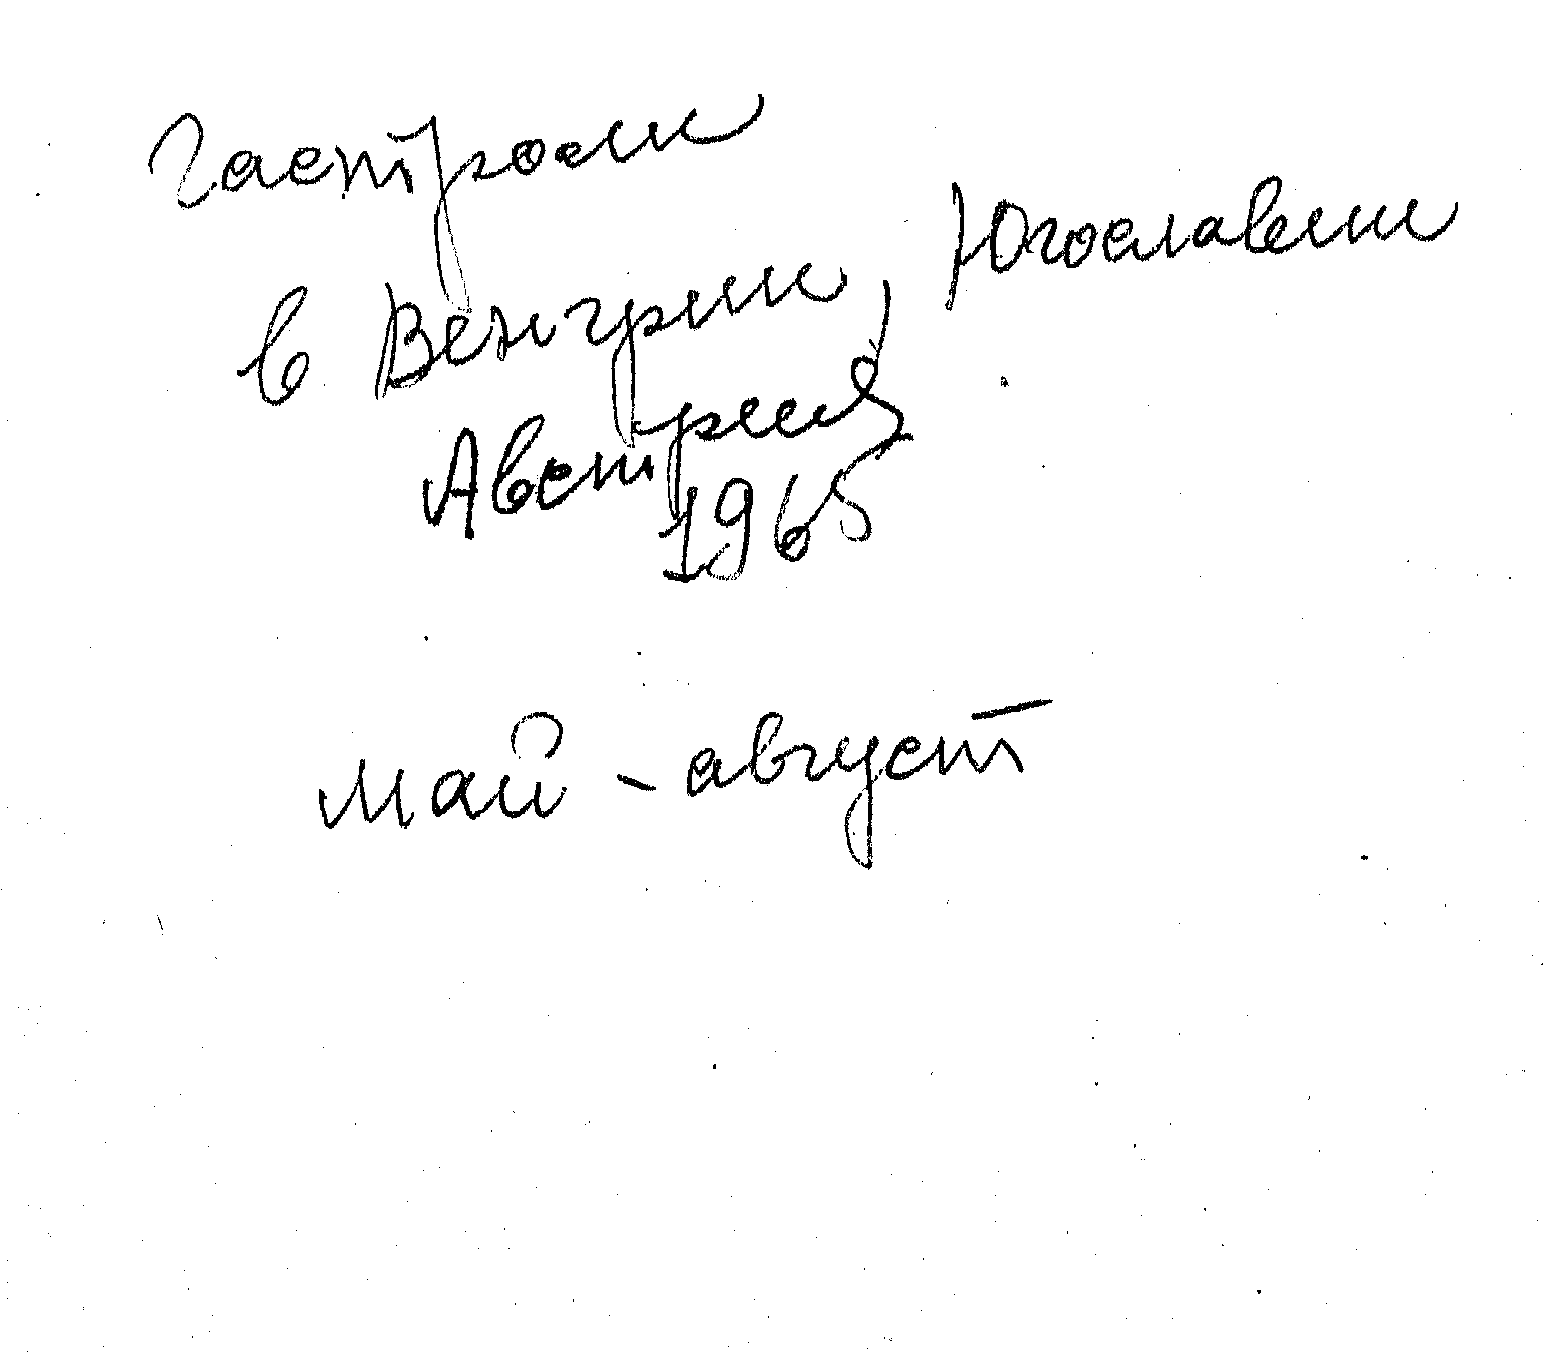 Гастроли
в Венгрии, Югославии
Австрия
1965
май - август